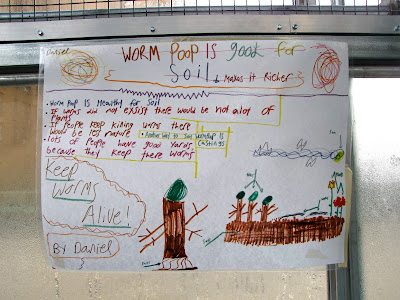 Daniel
WORM Poop IS good for
Soil & Makes it Richer
• Worm Poop IS Healthy for Soil
• If worms did not exsist there would be not alot of
Plants
• If People keep killing worms there
would be les nature
• Another word to Say wormpoop IS
castings
• lots of People have good yards
because they keep there worms
Keep
Worms
Alive!
By Daniel